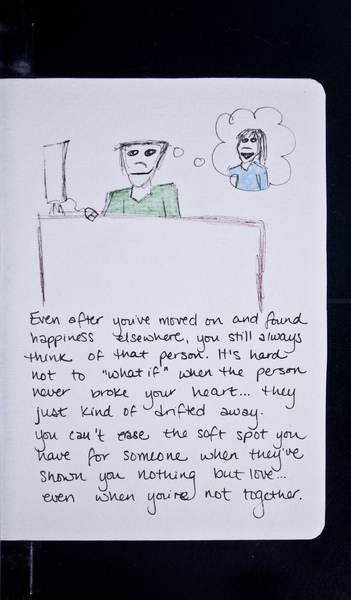 Even after you've moved on and found
happiness elsewhere, you still always
think of that person. It's hard
not to "what if" when the person
never broke your heart... they
just kind of drifted away.
you can't erase the soft spot you
have for someone when they've
shown you nothing but love...
even when you're not together.